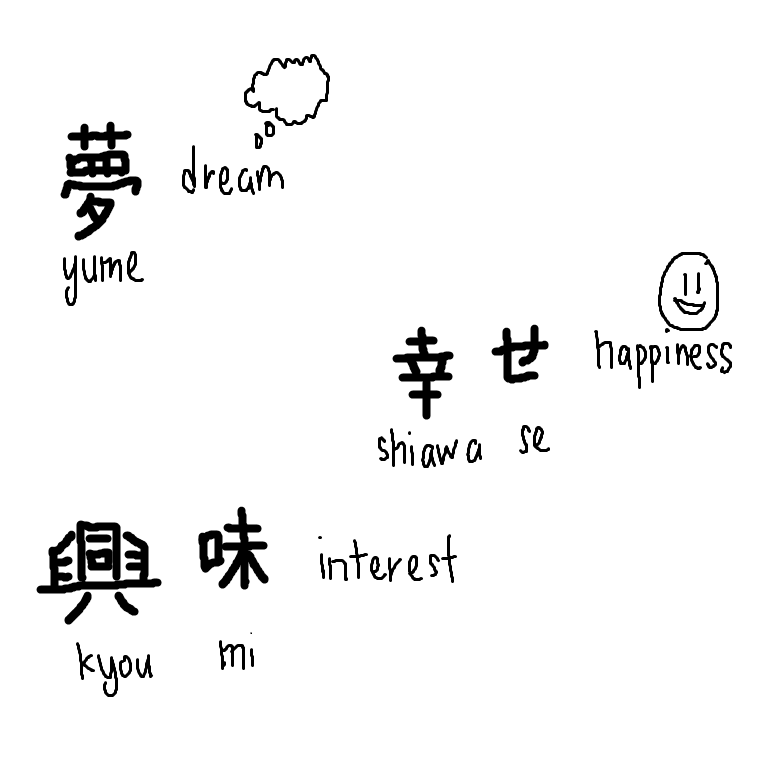 夢 dream
yume
幸せ happiness
shiawa se
興味 interest
kyou mi